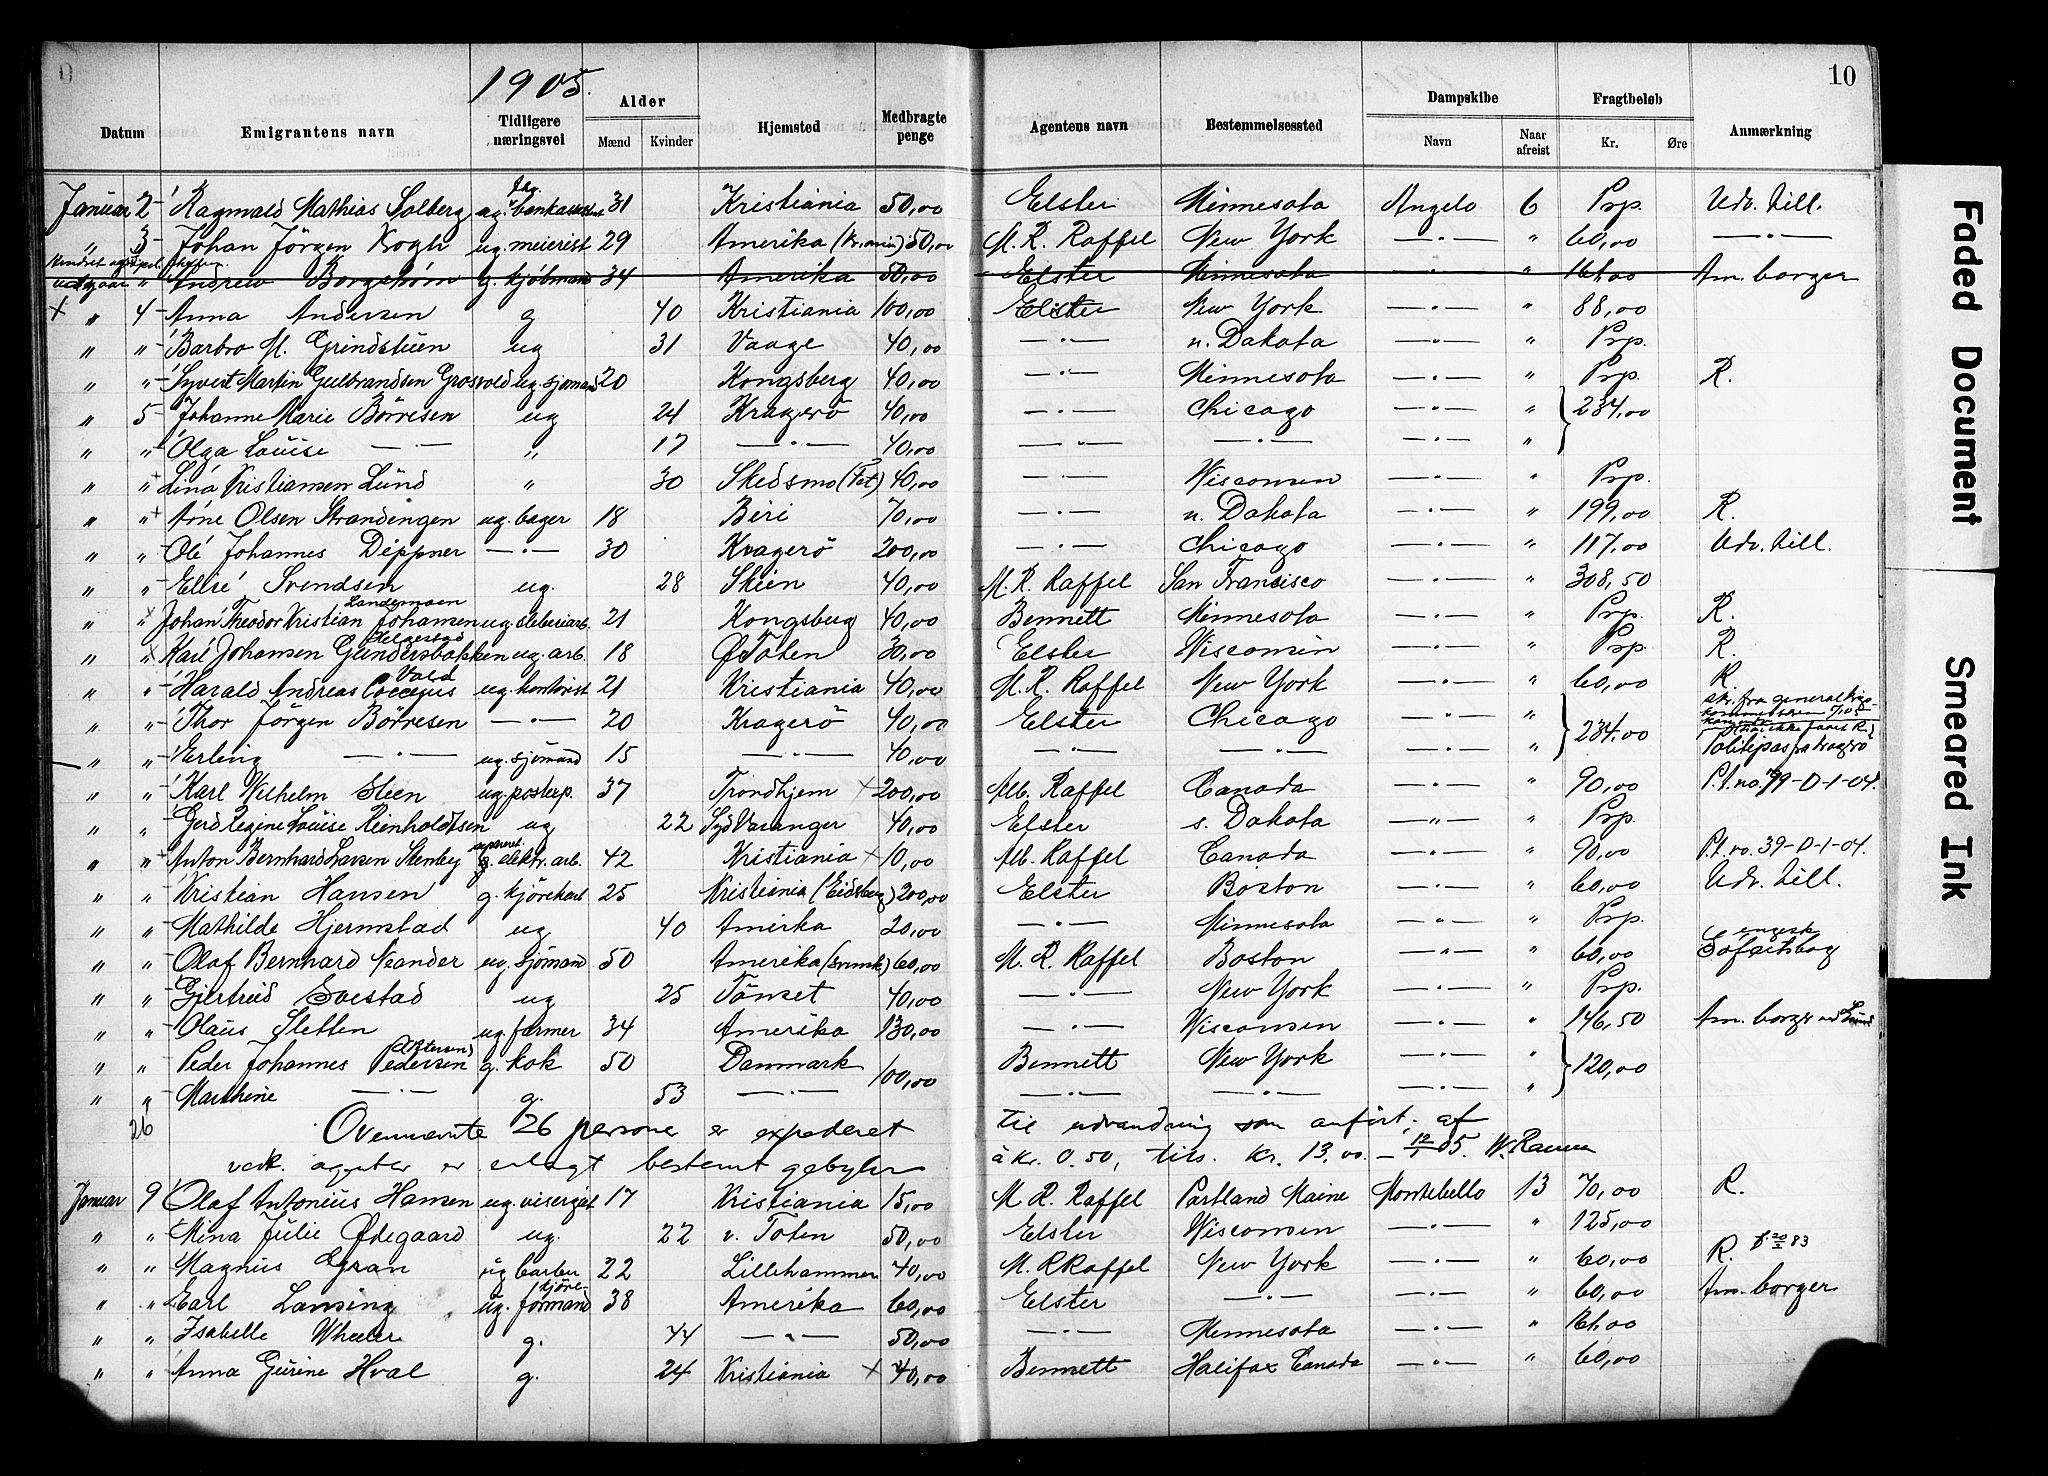 1905.
10
Datum | Emigrantens navn | Tidligere næringsvei | Alder Mænd Kvinder | Hjemsted | Medbragte penge | Agentens navn | Bestemmelsessted | Dampskibe Navn Naar afreist | Fragtbeløb Kr. Øre | Anmærkning
Januar 2 Ragnvald Mathias Solberg ug. 31 Kristiania 50,00 Elster Minnesota Angelo 6 Prp. Udv. till.
" 3 Johan Jörgen Krogh ug. meierist 29 Amerika (Kr.ania) 50,00 M. R. Raffel New York — " — " 60,00 — " —
" Andrew g. kjöbmand 34 Amerika 50,00 Elster Minnesota — " — " 161,00 Am. borger
+ " 4 Anna Andersen g 40 Kristiania 100,00 Elster New York — " — " 88,00
" " Barbro M. Grindstuen ug 31 Vaage 40,00 — " — n. Dakota — " — " Prp.
" " Syvert Martin Gulbrandsen Grosvold ug. sjömand 20 Kongsberg 40,00 — " — Minnesota — " — " Prp. R.
" 5 Johanne Marie Börresen ug 24 Kragerö 40,00 — " — Chicago — " — " } 234,00
" " Olga Louise — " — " 17 — " — 40,00 — " — — " — — " — "
" " Lina Kristiansen Lund " 30 Skedsmo (Fet) 40,00 — " — Wisconsin — " — " Prp.
" " Arne Olsen Strandengen ug. bager 18 Biri 70,00 — " — n. Dakota — " — " 199,00 R.
" " Ole Johannes Dippner — " — 30 Kragerö 200,00 — " — Chicago — " — " 117,00 Udv. till.
" " Elise Svendsen ug. 28 Skien 40,00 M. R. Raffel San Francisco — " — " 308,50
Landemoen
" " Johan Theodor Kristian Johansen ug. sliberiarb. 21 Kongsberg 40,00 Bennett Minnesota — " — " Prp. R.
Helgestad
" " Karl Johansen Gundersbakken ug. arb. 18 Ø Toten 30,00 Elster Wisconsin — " — " Prp. R.
Vold
" " Harald Andreas Coccejus ug. kontorist 21 Kristiania 40,00 M. R. Raffel New York — " — " 60,00 R
" " Thor Jörgen Börresen — " — 20 Kragerö 40,00 Elster Chicago — " — " } 234,00 skr. fra generalkrigskommissæren
" " Erling — " — ug. sjömand 15 — " — 40,00 — " — — " — — " — " Politipas fra Kragerö
" " Karl Wilhelm Steen ug. postexp. 37 Trondhjem + 200,00 Alb. Raffel Canada — " — " 90,00 P.t. no. 79-D-1-04.
" " Gerd Regine Louise Reinholdtsen ug 22 Syd Varanger 40,00 Elster s. Dakota — " — " Prp.
separeret
" " Anton Bernhard Larsen Stenby g. elektr. arb. 42 Kristiania + 10,00 Alb. Raffel Canada — " — " 90,00 P.t. no. 39-D-1-04.
" " Kristian Hansen g. kjörekarl 25 Kristiania (Eidsberg) 200,00 Elster Boston — " — " 60,00 Udv. till.
" " Mathilde Hjermstad ug 40 Amerika 20,00 — " — Minnesota — " — " Prp.
" " Olaf Bernhard Neander ug. sjömand 50 Amerika (svensk) 60,00 M. R. Raffel Boston — " — " 60,00 engelsk Sofartsbog
" " Gjertrud Svestad ug 25 Tönset 40,00 — " — New York — " — " Prp.
" " Olaus Sletten ug. farmer 34 Amerika 130,00 — " — Wisconsin — " — " 146,50 Am. borger
(Petersen)
" " Peder Johannes Pedersen g. kok 50 Danmark 100,00 Bennett New York — " — " } 120,00
" " Marthine — " — g. 53 — " — — " — — " — — " — "
26 Ovennævnte 26 personer er expederet til udvandring som anfört; af
vedk. agenter er erlagt bestemt gebyhr à kr. 0.50, tils. kr. 13,00 — 12/1 05.
Januar 9 Olaf Antonius Hansen ug. visergut 17 Kristiania 15,00 M R. Raffel Portland Maine Montebello 13 70,00 R.
" " Mina Julie Ødegaard ug. 22 v. Toten 50,00 Elster Wisconsin — " — " 125,00
" " Magnus Gran ug barber 22 Lillehammer 40,00 M. R Raffel New York — " — " 60,00 R. f. 20/2 83
" " Earl Lansing ug. kjöreformand 38 Amerika 60,00 Elster — " — — " — " 60,00 Am. borger
" " Isabelle Wheeler g. 44 — " — 50,00 — " — Minnesota — " — " 161,00
" " Anna Gurine Hval g. 24 Kristiania + 40,00 Bennett Halifax Canada — " — " 60,00
Faded Document
Smeared Ink